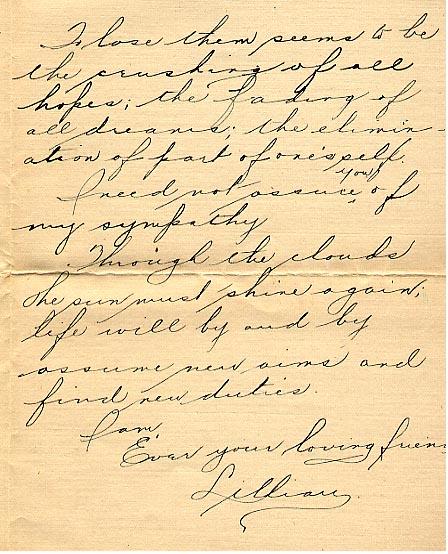 To lose them seems to be
the crushing of all
hopes; the fading of
all dreams; the elimin-
ation of part of one's self.
I need not assure you of
my sympathy
Through the clouds
the sun must shine again;
life will by and by
assume new aims and
find new duties.
I am,
Ever your loving friend
Lillian.